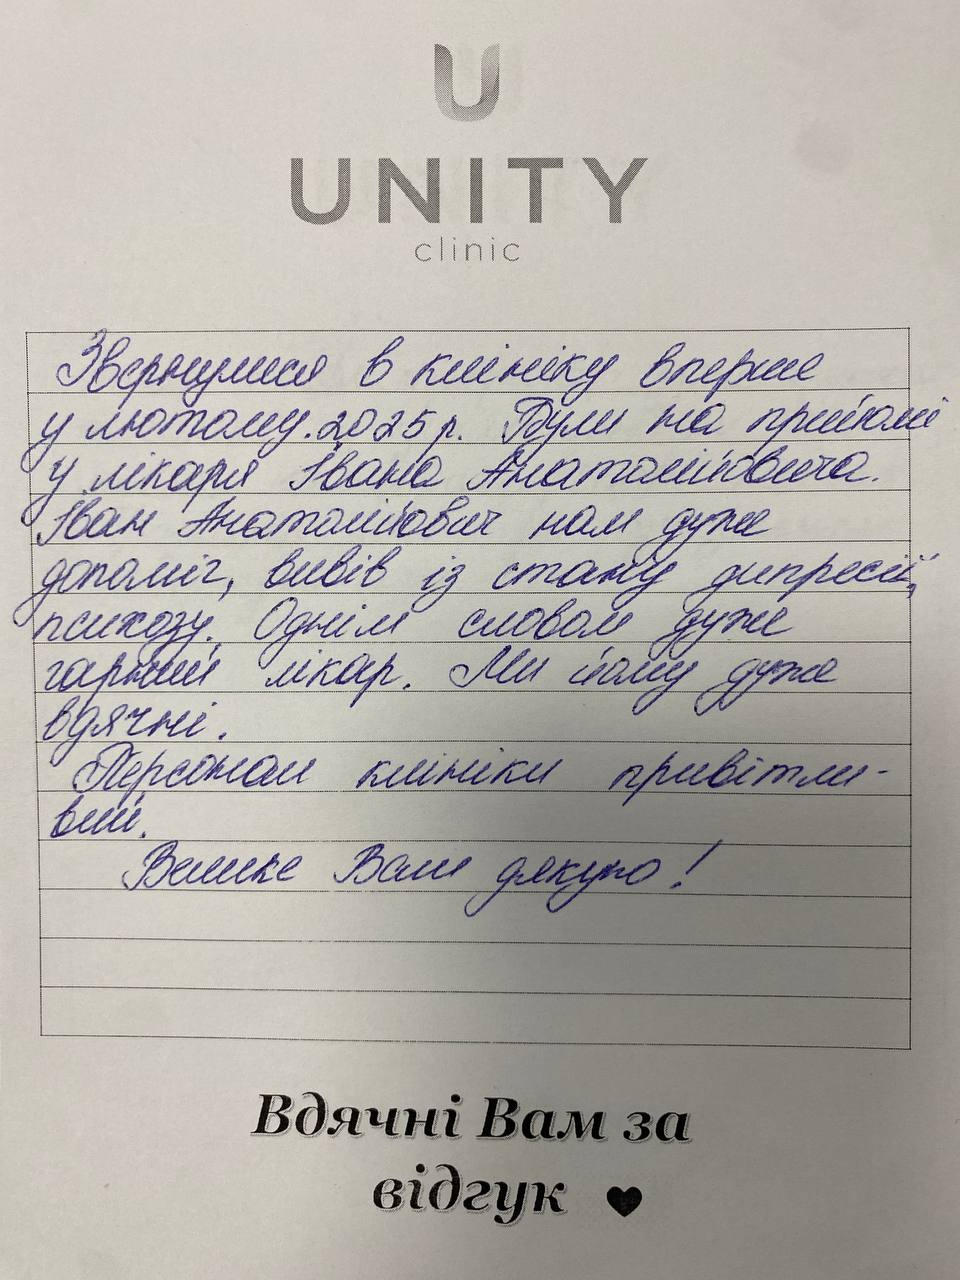 U
UNITY
clinic
Звернулися в клініку вперше
у лютому.2025р. Були на прийомі
у лікаря Івана Анатолійовича.
Іван Анатолійович нам дуже
допоміг, вивів із стану дипресії,
психозу. Однім словом дуже
гарний лікар. Ми йому дуже
вдячні.
Персонал клініки привітли-
вий.
Велике Вам дякую!
Вдячні Вам за
відгук ♥